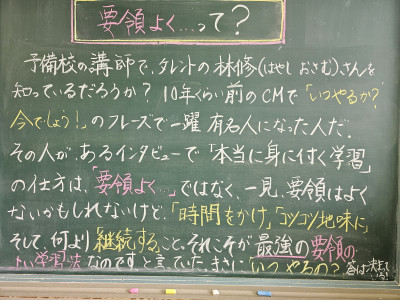 要領よく…って?
予備校の講師で、タレントの林修(はやし おさむ)さんを
知っているだろうか? 10年くらい前のCMで「いつやるか?
今でしょう!」のフレーズで一躍有名人になった人だ。
その人が、あるインタビューで「本当に身に付く学習」
の仕方は、「要領よく…」ではなく、一見、要領はよく
ないかもしれないけど、「時間をかけ」「コツコツ地味に」
そして、何より継続すること、それこそが最強の要領の
よい学習法なのですと言っていた。まさに「いつやるの?答は決まっている!